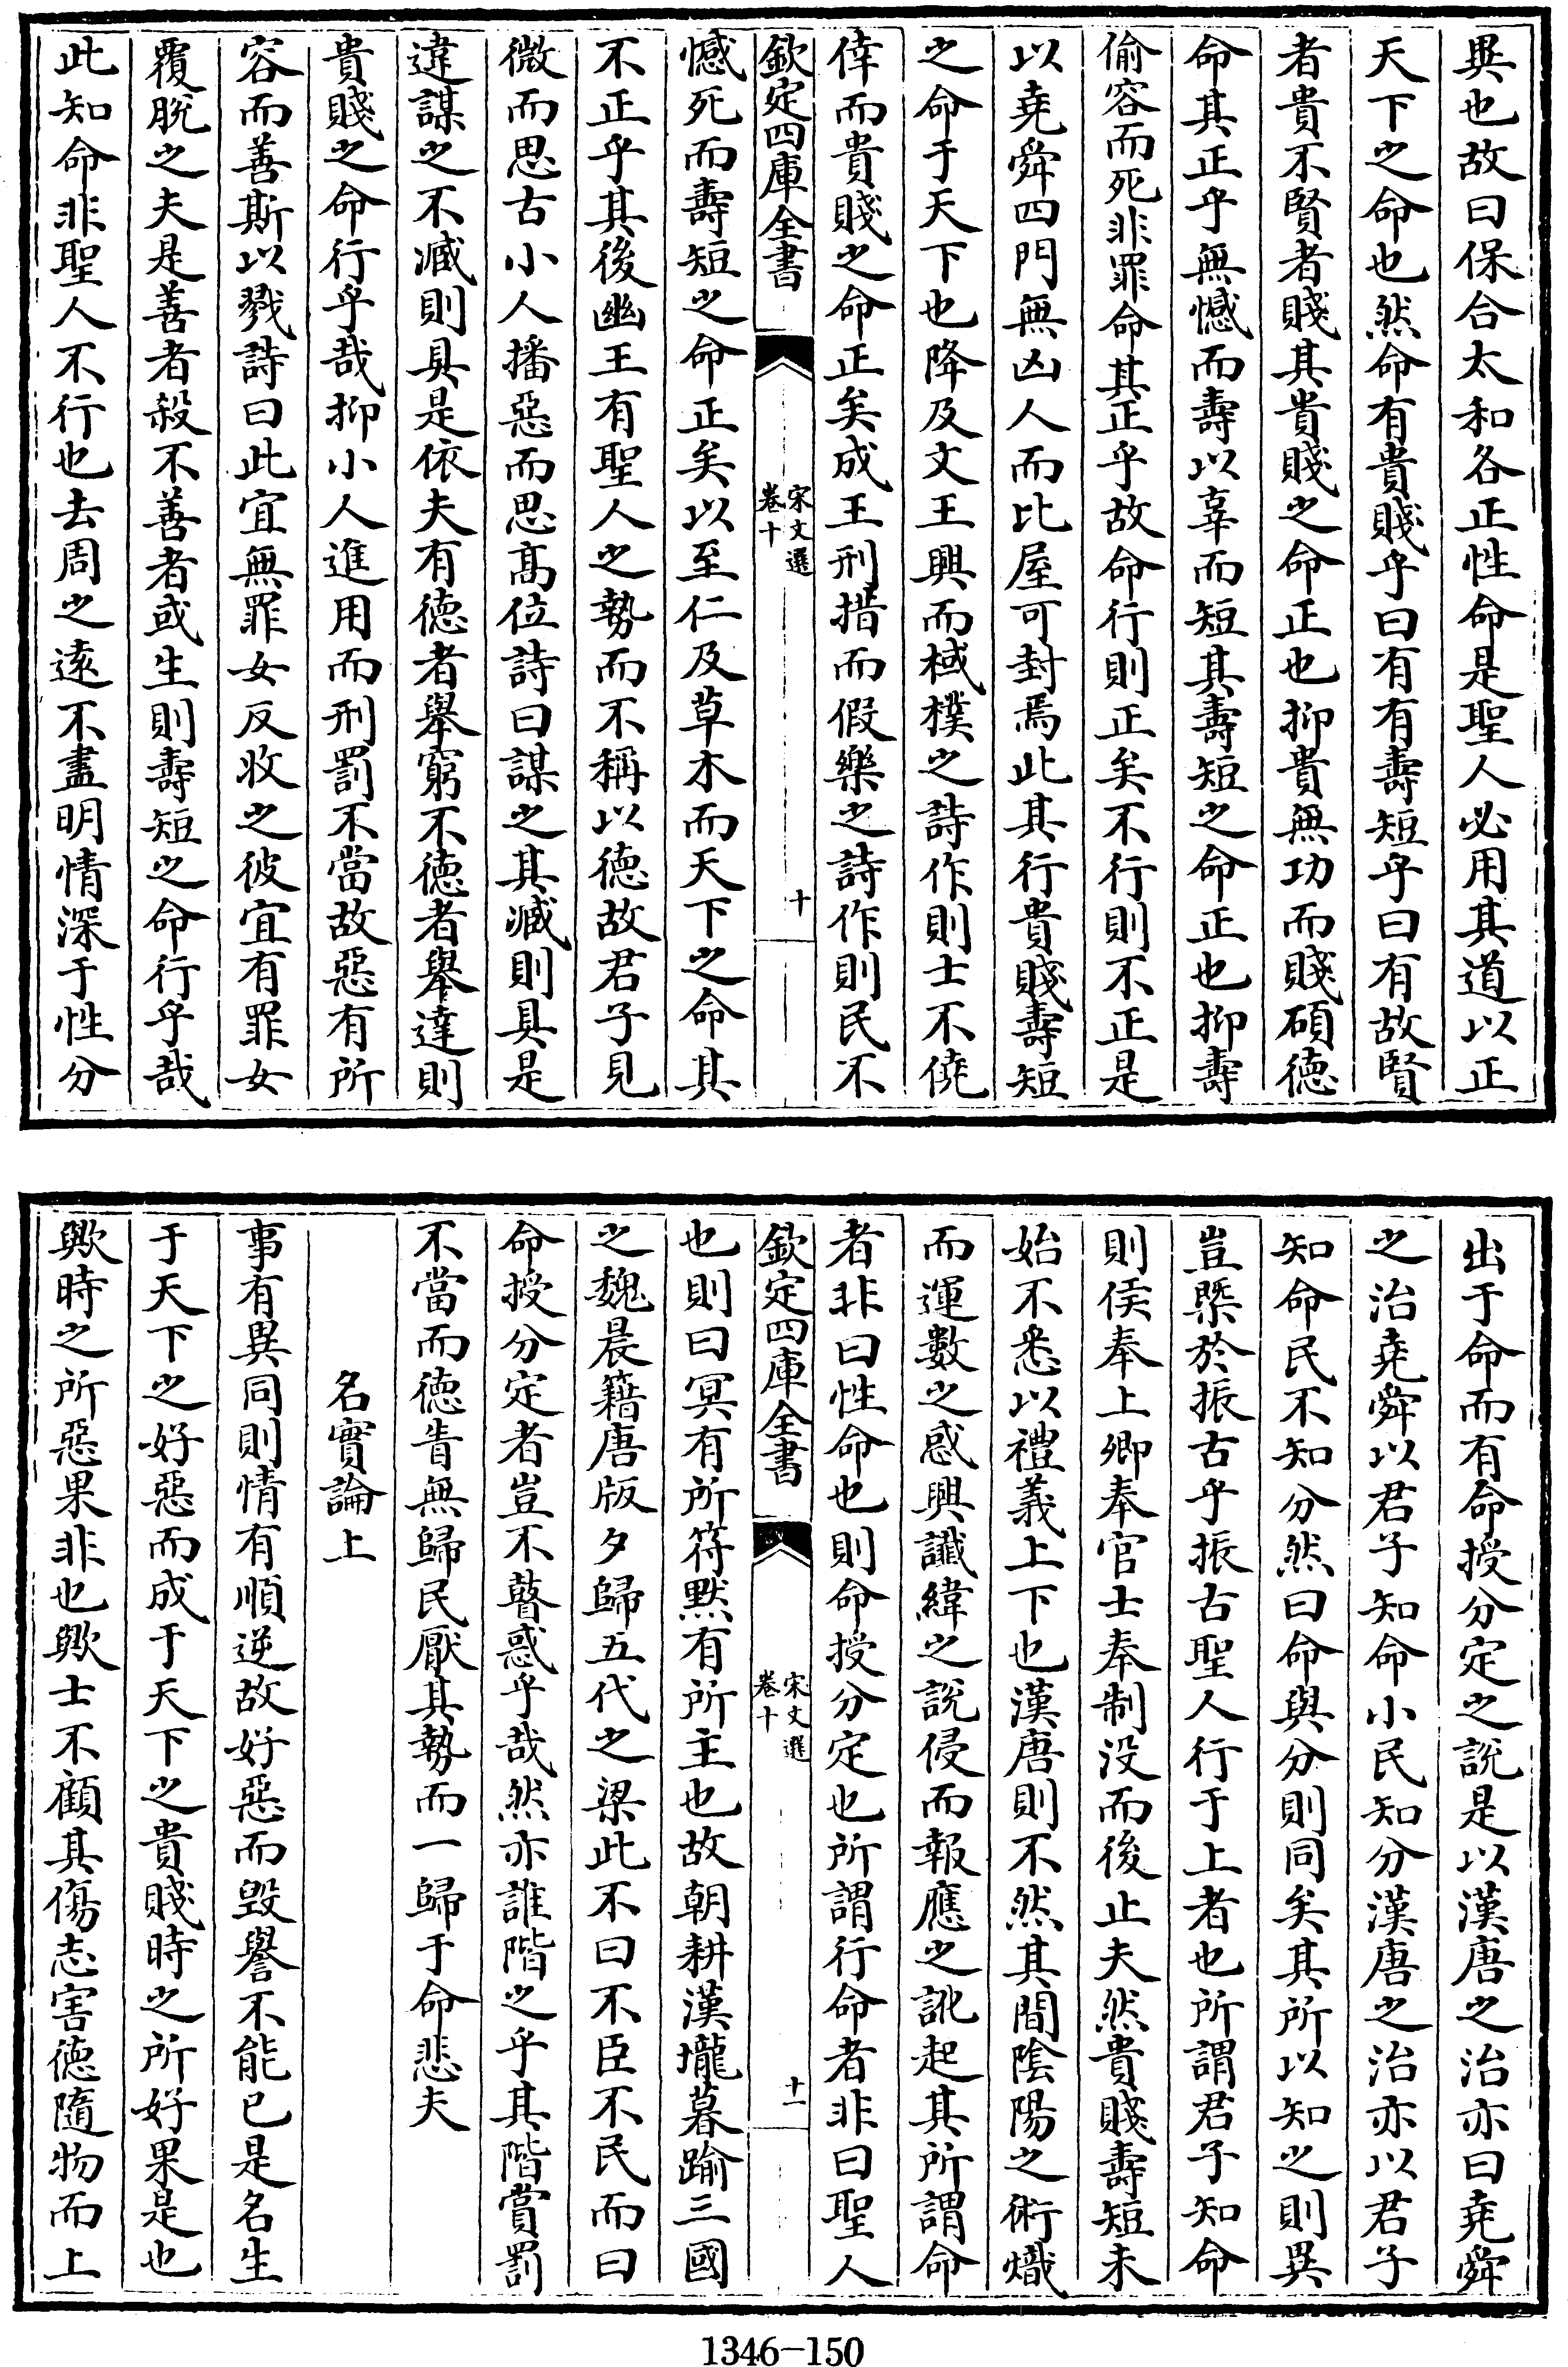 異也故曰保合太和各正性命是聖人必用其道以正
天下之命也然命有貴賤乎曰有有壽短乎曰有故賢
者貴不賢者賤其貴賤之命正也抑貴無功而賤碩德
命其正乎無憾而壽以辜而短其壽短之命正也抑壽
偷容而死非罪命其正乎故命行則正矣不行則不正是
以堯舜四門無凶人而比屋可封焉此其行貴賤壽短
之命于天下也降及文王興而棫樸之詩作則士不僥
倖而貴賤之命正矣成王刑措而假樂之詩作則民不
欽定四庫全書
宋文選
卷十
十
憾死而壽短之命正矣以至仁及草木而天下之命其
不正乎其後幽王有聖人之勢而不稱以德故君子見
微而思古小人播惡而思高位詩曰謀之其臧則具是
違謀之不臧則具是依夫有德者舉窮不德者舉達則
貴賤之命行乎哉抑小人進用而刑罰不當故惡有所
容而善斯以戮詩曰此宜無罪女反收之彼宜有罪女
覆脫之夫是善者殺不善者或生則壽短之命行乎哉
此知命非聖人不行也去周之遠不盡明情深于性分
出于命而有命授分定之說是以漢唐之治亦曰堯舜
之治堯舜以君子知命小民知分漢唐之治亦以君子
知命民不知分然曰命與分則同矣其所以知之則異
豈槩於振古乎振古聖人行于上者也所謂君子知命
則侯奉上卿奉官士奉制没而後止夫然貴賤壽短未
始不悉以禮義上下也漢唐則不然其間陰陽之術熾
而運數之惑興讖緯之說侵而報應之訛起其所謂命
者非曰性命也則命授分定也所謂行命者非曰聖人
欽定四庫全書
宋文選
卷十
十一
也則曰冥有所符默有所主也故朝耕漢壠暮踰三國
之魏晨籍唐版夕歸五代之梁此不曰不臣不民而曰
命授分定者豈不瞽惑乎哉然亦誰階之乎其階賞罰
不當而德眚無歸民厭其勢而一歸于命悲夫
名實論上
事有異同則情有順逆故好惡而毀譽不能已是名生
于天下之好惡而成于天下之貴賤時之所好果是也
歟時之所惡果非也歟士不顧其傷志害德隨物而上